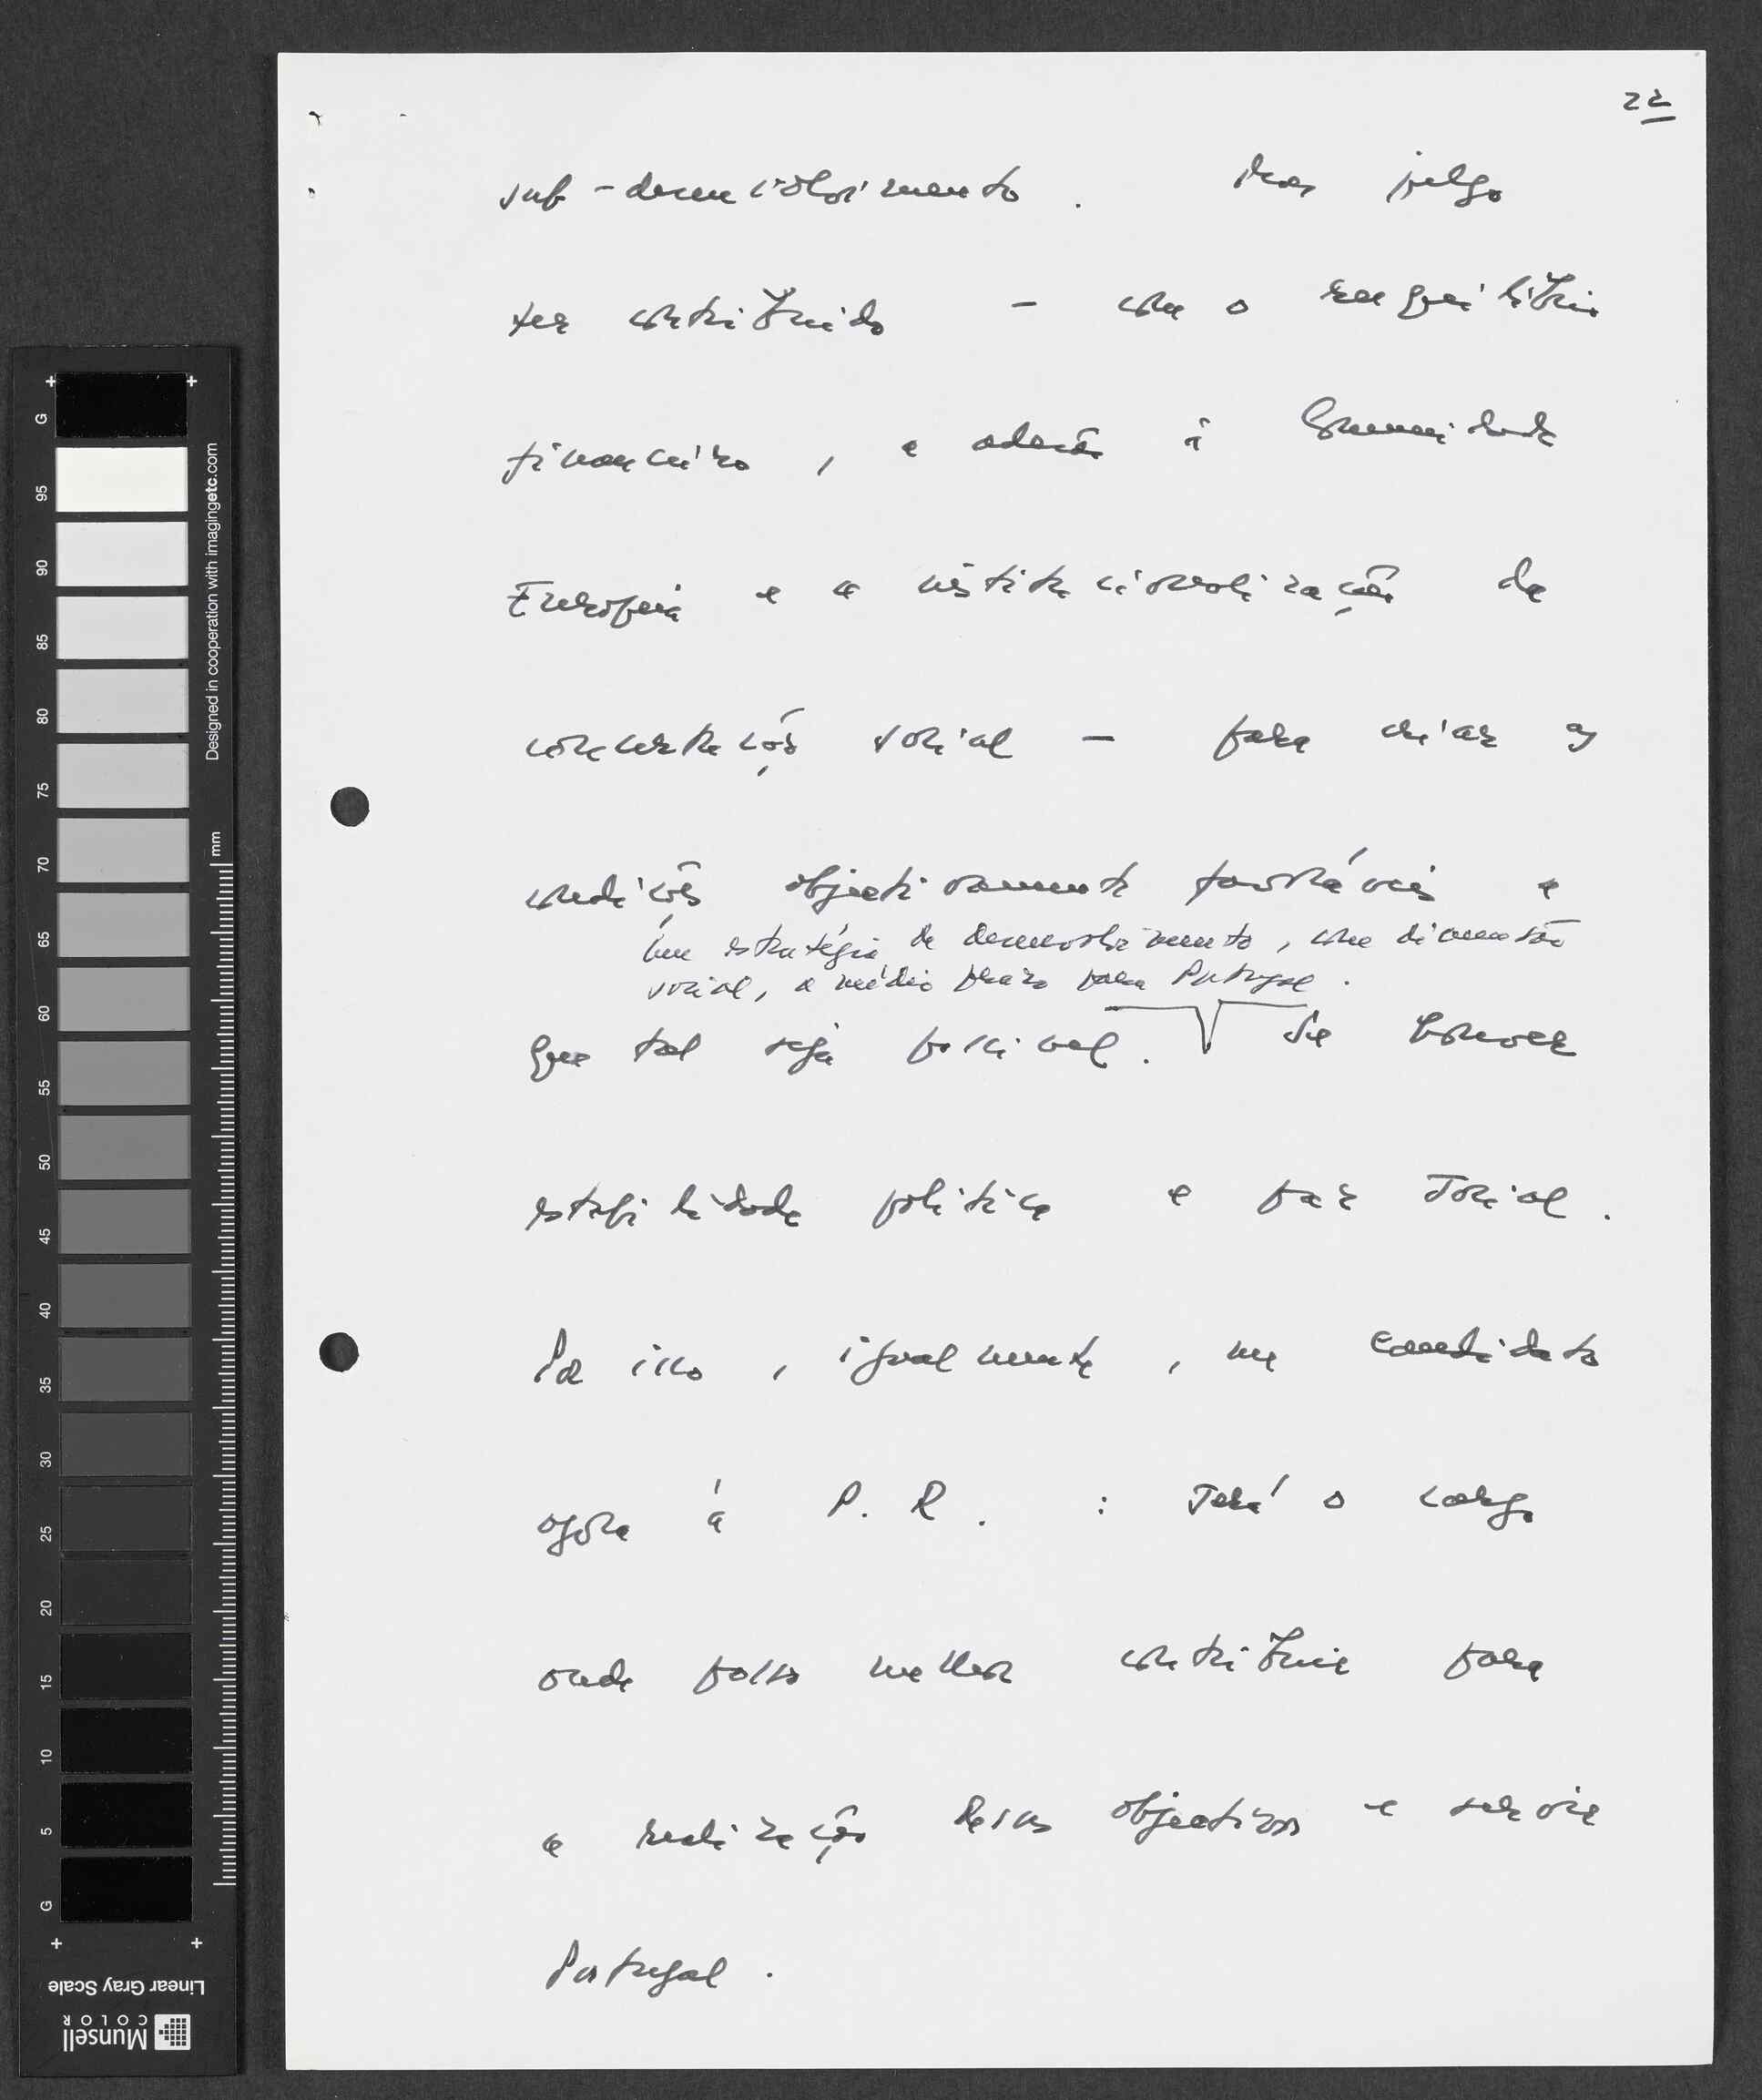 22
sub-desenvolvimento. Mas julgo
ter contribuido - com o reequilibrio
financeiro, a adesão à Comunidade
Europeia e a institucionalização da
concertação social - para criar as
condições objectivamente favoráveis a
uma estratégia de desenvolvimento, com dimensão
social, a médio prazo para Portugal.
que tal seja possivel. Se houver
estabilidade politica e paz social.
Por isso, igualmente, me candidato
agora à P. R. : Será o cargo
onde posso melhor contribuir para
a realização desses objectivos e servir
Portugal.
G
95
90
85
80
75
70
65
60
55
50
45
40
35
30
25
20
15
10
5
G
mm
Designed in cooperation with imagingetc.com
Linear Gray Scale
Munsell
COLOR